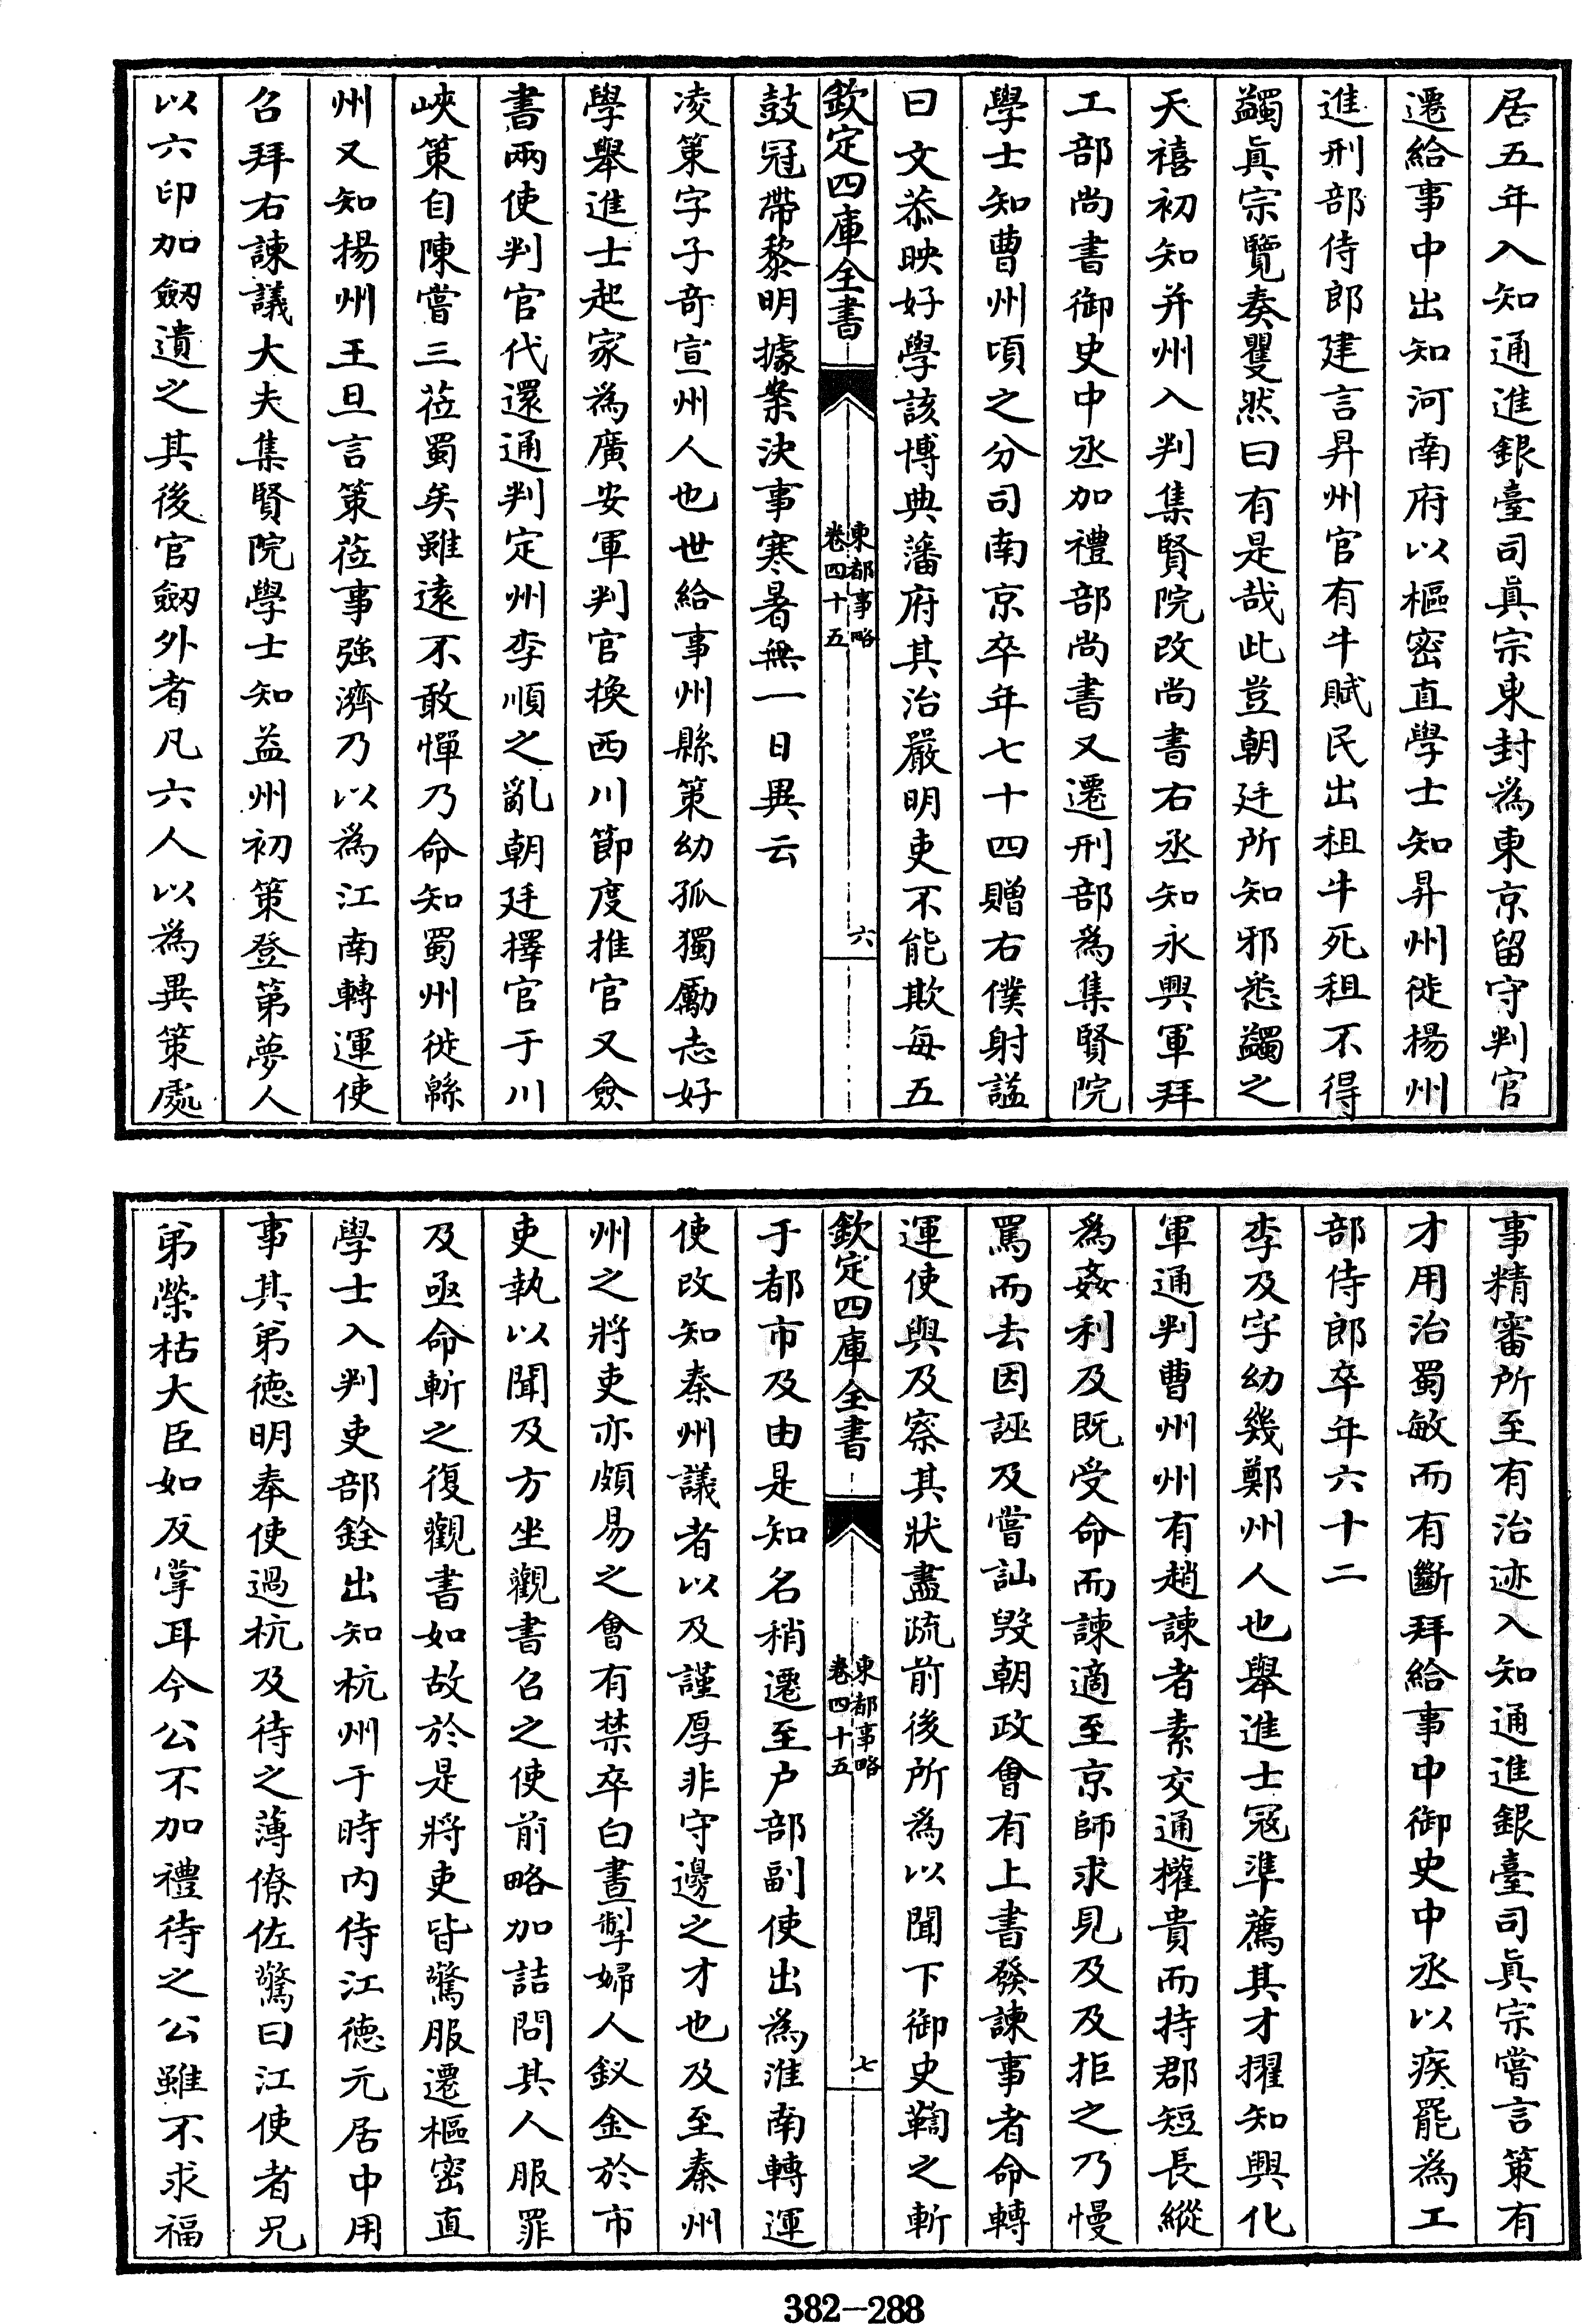 居五年入知通進銀臺司眞宗東封為東京留守判官
遷給事中出知河南府以樞密直學士知昇州徙揚州
進刑部侍郎建言昇州官有牛賦民出租牛死租不得
蠲眞宗覽奏瞿然曰有是哉此豈朝廷所知邪悉蠲之
天禧初知并州入判集賢院改尚書右丞知永興軍拜
工部尚書御史中丞加禮部尚書又遷刑部為集賢院
學士知曹州頃之分司南京卒年七十四贈右僕射諡
曰文恭映好學該博典藩府其治嚴明吏不能欺每五
欽定四庫全書
東都事略
卷四十五
六
鼓冠帶黎明據案決事寒暑無一日異云
凌策字子奇宣州人也世給事州縣策幼孤獨勵志好
學舉進士起家為廣安軍判官換西川節度推官又僉
書兩使判官代還通判定州李順之亂朝廷擇官于川
峽策自陳嘗三莅蜀矣雖遠不敢憚乃命知蜀州徙緜
州又知揚州王旦言策莅事強濟乃以為江南轉運使
召拜右諫議大夫集賢院學士知益州初策登第夢人
以六印加劔遺之其後官劔外者凡六人以為異策處
事精審所至有治迹入知通進銀臺司眞宗嘗言策有
才用治蜀敏而有斷拜給事中御史中丞以疾罷為工
部侍郎卒年六十二
李及字幼幾鄭州人也舉進士冦準薦其才擢知興化
軍通判曹州州有趙諫者素交通權貴而持郡短長縱
為姦利及既受命而諫適至京師求見及及拒之乃慢
罵而去因誣及嘗訕毀朝政會有上書發諫事者命轉
運使與及察其狀盡疏前後所為以聞下御史鞫之斬
欽定四庫全書
東都事略
卷四十五
七
于都市及由是知名稍遷至户部副使出為淮南轉運
使改知秦州議者以及謹厚非守邊之才也及至秦州
州之將吏亦頗易之會有禁卒白晝掣婦人釵金於市
吏執以聞及方坐觀書召之使前略加詰問其人服罪
及亟命斬之復觀書如故於是將吏皆驚服遷樞密直
學士入判吏部銓出知杭州于時内侍江德元居中用
事其弟德明奉使過杭及待之薄僚佐驚曰江使者兄
弟榮枯大臣如反掌耳今公不加禮待之公雖不求福
382-288